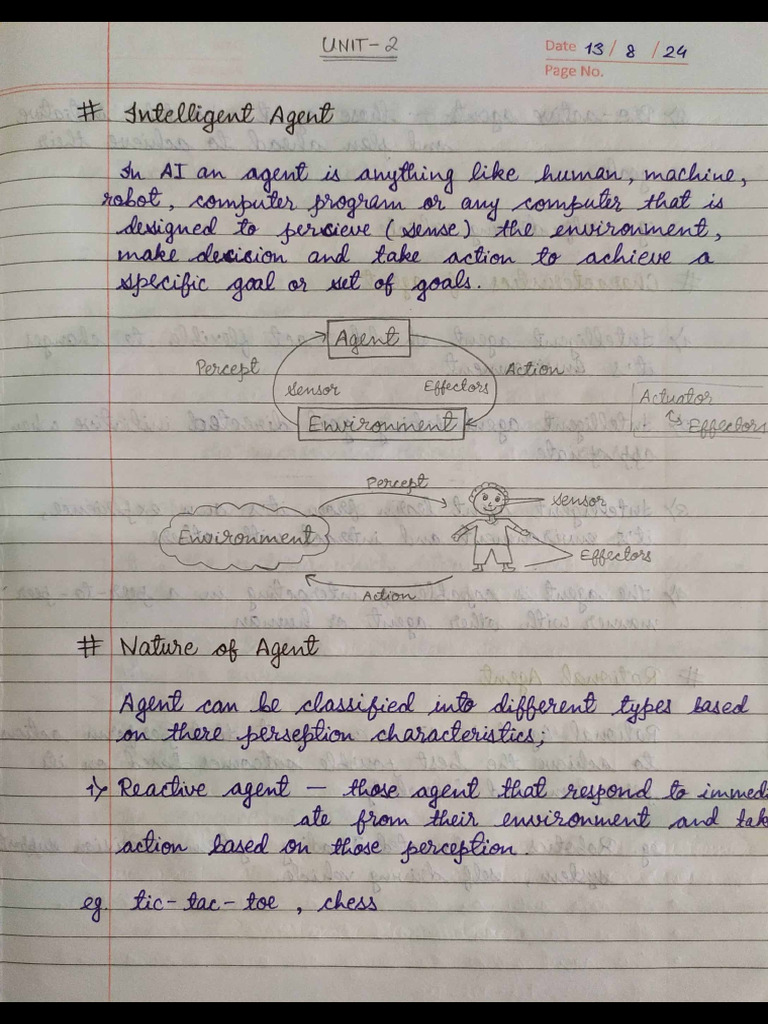 UNIT-2
Date 13 / 8 / 24
Page No.
# Intelligent Agent
In AI an agent is anything like human, machine,
robot, computer program or any computer that is
designed to percieve (sense) the environment,
make decision and take action to achieve a
specific goal or set of goals.
Agent
Percept
Action
Sensor
Effectors
Environment
Actuator
↳ Effectors
Percept
Sensor
Environment
Effectors
Action
# Nature of Agent
Agent can be classified into different types based
on there perseption characteristics;
1) Reactive agent — those agent that respond to immedi
ate from their environment and take
action based on those perception.
eg. tic-tac-toe, chess